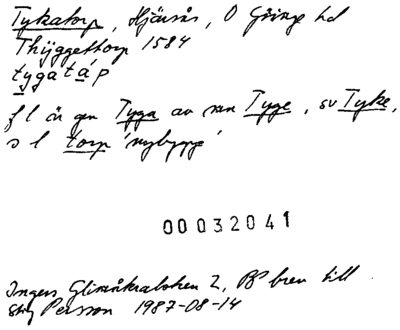 Tykatorp, Hjärsås, Ö Göinge hd
Thyggettorp 1584
tygatáp
f l är gen Tyga av mn Tyge, sv Tyke,
s l torp 'nybygge'
00032041
Ingers Glimåkraboken 2, PB brev till
Stig Persson 1987-08-14